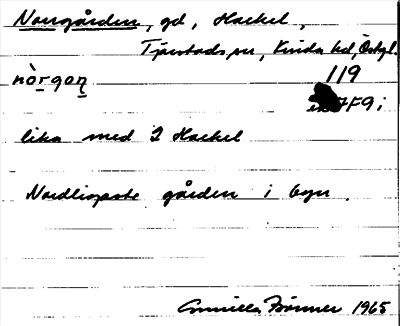 Norrgården, gd, Hackel,
Tjärstads sn, Kinda hd, Östgl.
nòrgan 119
7F9;
lika med 2 Hackel
Nordligaste gården i byn.
Gunilla 1965